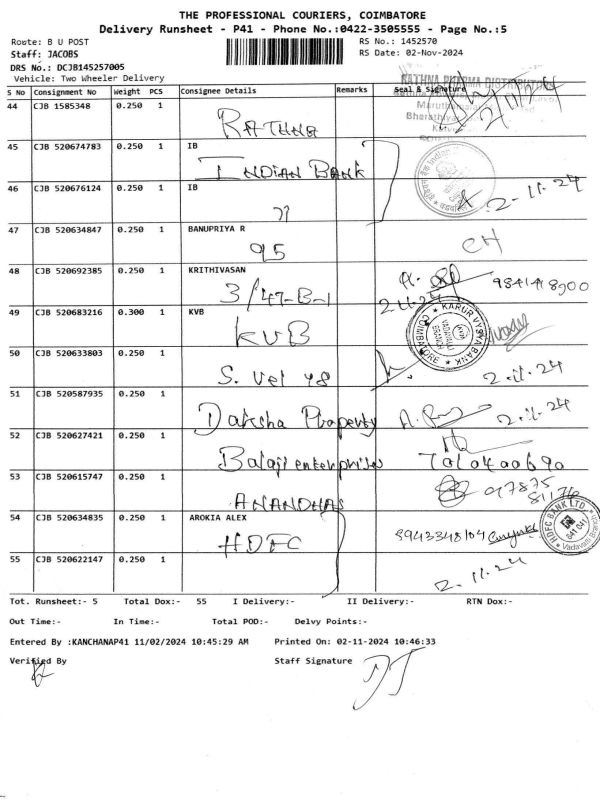 THE PROFESSIONAL COURIERS, COIMBATORE
Delivery Runsheet - P41 - Phone No.:0422-3505555 - Page No.:5
Route: B U POST RS No.: 1452570
Staff: JACOBS RS Date: 02-Nov-2024
DRS No.: DCJB145257005
Vehicle: Two Wheeler Delivery
RATHNA PHARMA DISTRIBUTORS
S No Consignment No Weight PCS Consignee Details Remarks Seal & Signature
44 CJB 1585348 0.250 1
RATHNA
45 CJB 520674783 0.250 1 IB
INDIAN BANK
46 CJB 520676124 0.250 1 IB
2.11.24
47 CJB 520634847 0.250 1 BANUPRIYA R
95 CH
48 CJB 520692385 0.250 1 KRITHIVASAN
3/47-B-1 9841418900
49 CJB 520683216 0.300 1 KVB
KVB
KARUR VYSYA BANK
VADAVALLI BRANCH
COIMBATORE
50 CJB 520633803 0.250 1
S. Vel 48 2.11.24
51 CJB 520587935 0.250 1
Daksha Property 2.11.24
52 CJB 520627421 0.250 1
Balaji enterprises
53 CJB 520615747 0.250 1
ANANDHAS
54 CJB 520634835 0.250 1 AROKIA ALEX
HDFC
HDFC BANK LTD.
55 CJB 520622147 0.250 1
2.11.24
Tot. Runsheet:- 5 Total Dox:- 55 I Delivery:- II Delivery:- RTN Dox:-
Out Time:- In Time:- Total POD:- Delvy Points:-
Entered By :KANCHANAP41 11/02/2024 10:45:29 AM Printed On: 02-11-2024 10:46:33
Verified By Staff Signature